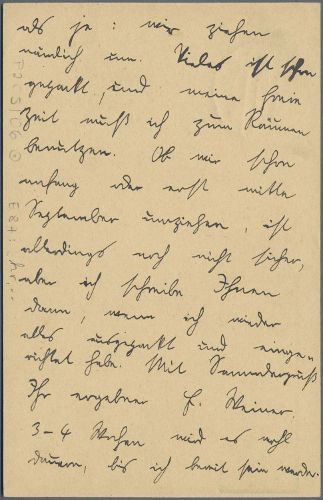 als je: wir ziehen
nämlich um. Vieles ist schon
gepackt, und meine freie
Zeit muß ich zum Räumen
benutzen. Ob wir schon
anfang oder erst mitte
September umziehen, ist
allerdings noch nicht sicher,
aber ich schreibe Ihnen
dann, wenn ich wieder
alles ausgepackt und einge-
richtet habe. Mit Sammlergruß
Ihr ergebener F. Weiner.
3-4 Wochen wird es wohl
dauern, bis ich bereit sein werde.